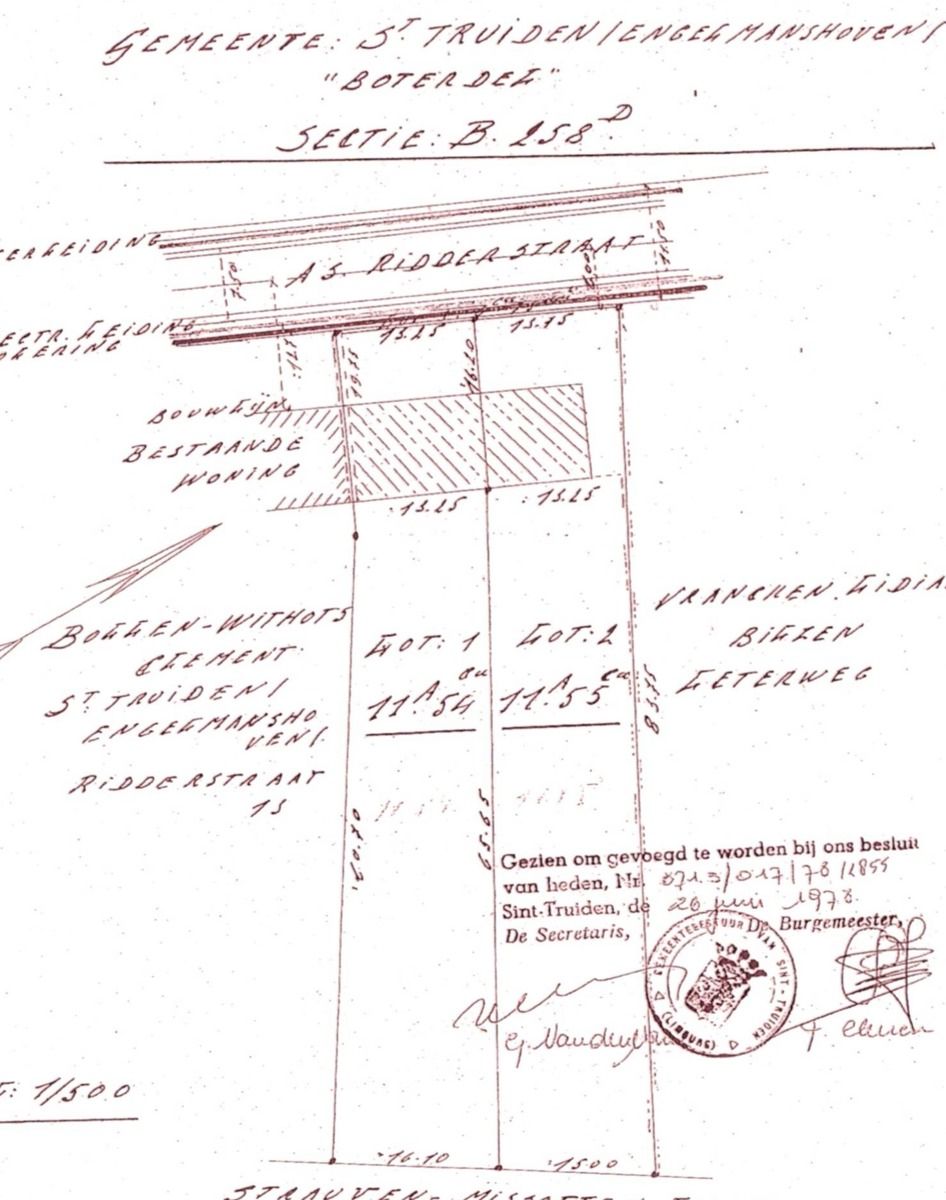 GEMEENTE: ST TRUIDEN/ENGELMANSHOVEN/
"BOTERDEL"
SECTIE: B. 258D
ERLEIDING
AS RIDDERSTRAAT
7.50
5.00
ECTR. LEIDING
13.25
13.15
16.20
BOUWLIJN
BESTAANDE
WONING
13.25
13.25
BOLLEN-WITHOFS
CLEMENT
ST TRUIDEN/
ENGELMANSHO
VEN/
RIDDERSTRAAT
15
LOT: 1
11A 54ca
LOT: 2
11A 55ca
VRANCKEN. LIDIA
BILZEN
LETERWEG
83.75
60.70
65.65
Gezien om gevoegd te worden bij ons besluit
van heden, Nr. 8713/017/78/1855
Sint-Truiden, de 26 juni 1978.
De Secretaris,
De Burgemeester,
GEMEENTEBESTUUR VAN SINT-TRUIDEN (LIMBURG)
T: 1/500
16.10
15.00